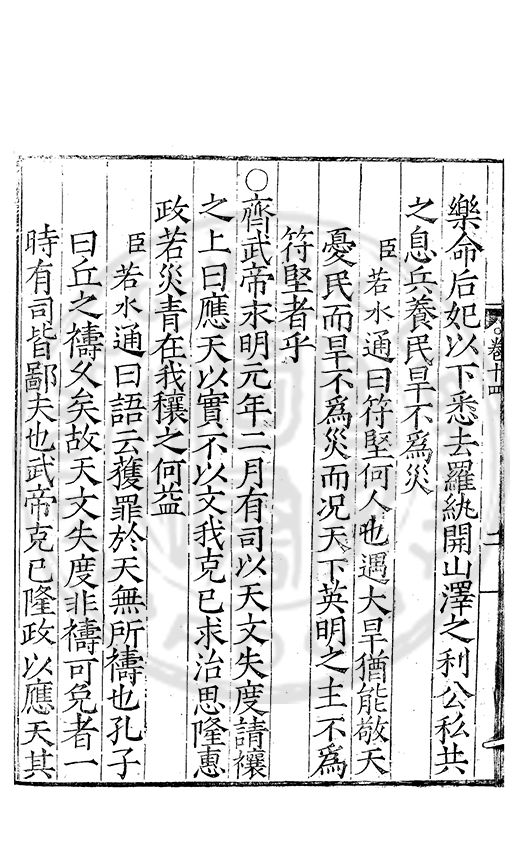 樂命后妃以下悉去羅紈開山澤之利公私共
之息兵養民旱不爲災
臣若水通曰符堅何人也遇大旱猶能敬天
憂民而旱不爲災而况天下英明之主不爲
符堅者乎
○齊武帝永明元年二月有司以天文失度請禳
之上曰應天以實不以文我克已求治思隆惠
政若災青在我禳之何益
臣若水通曰語云獲罪於天無所禱也孔子
曰丘之禱久矣故天文失度非禱可免者一
時有司皆鄙夫也武帝克已隆政以應天其
卷十四